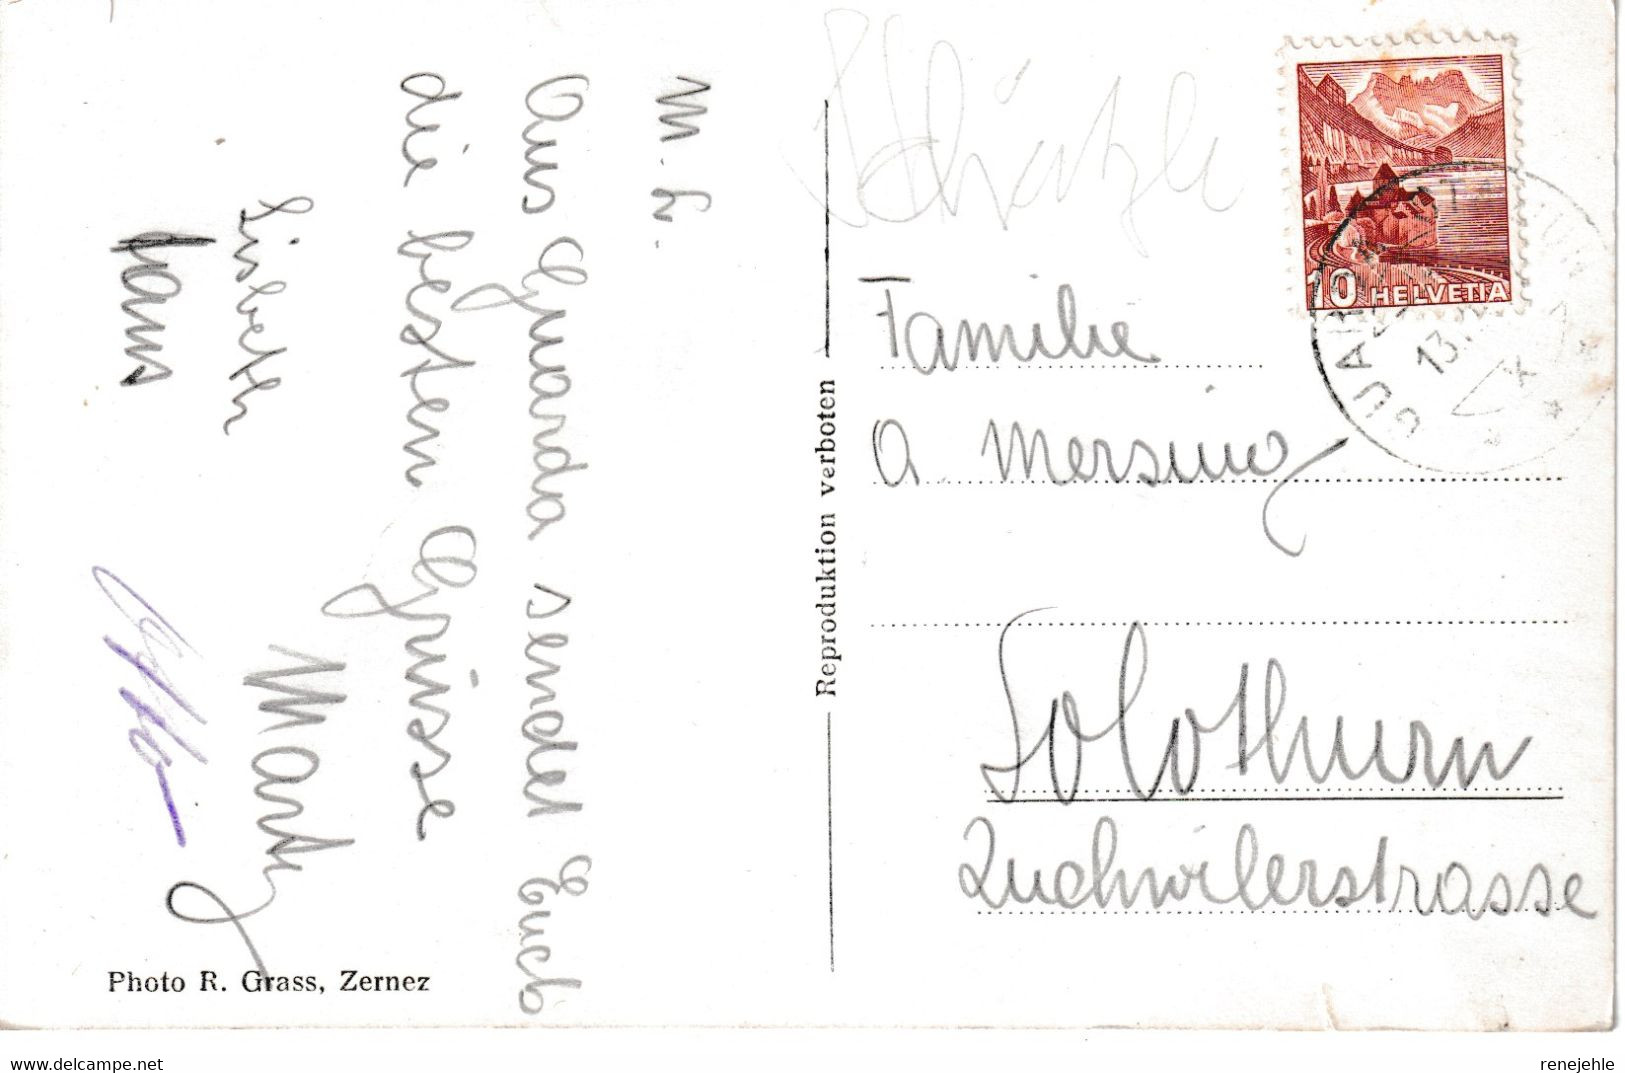 M. L.
Aus Guarda sendet Euch
die besten Grüsse
Marty
Lisbeth
Hans
Photo R. Grass, Zernez
Reproduktion verboten
10 HELVETIA
GUARDA
13.
Familie
A. Mersing
Solothurn
Zuchwilerstrasse
delcampe.net
renejehle